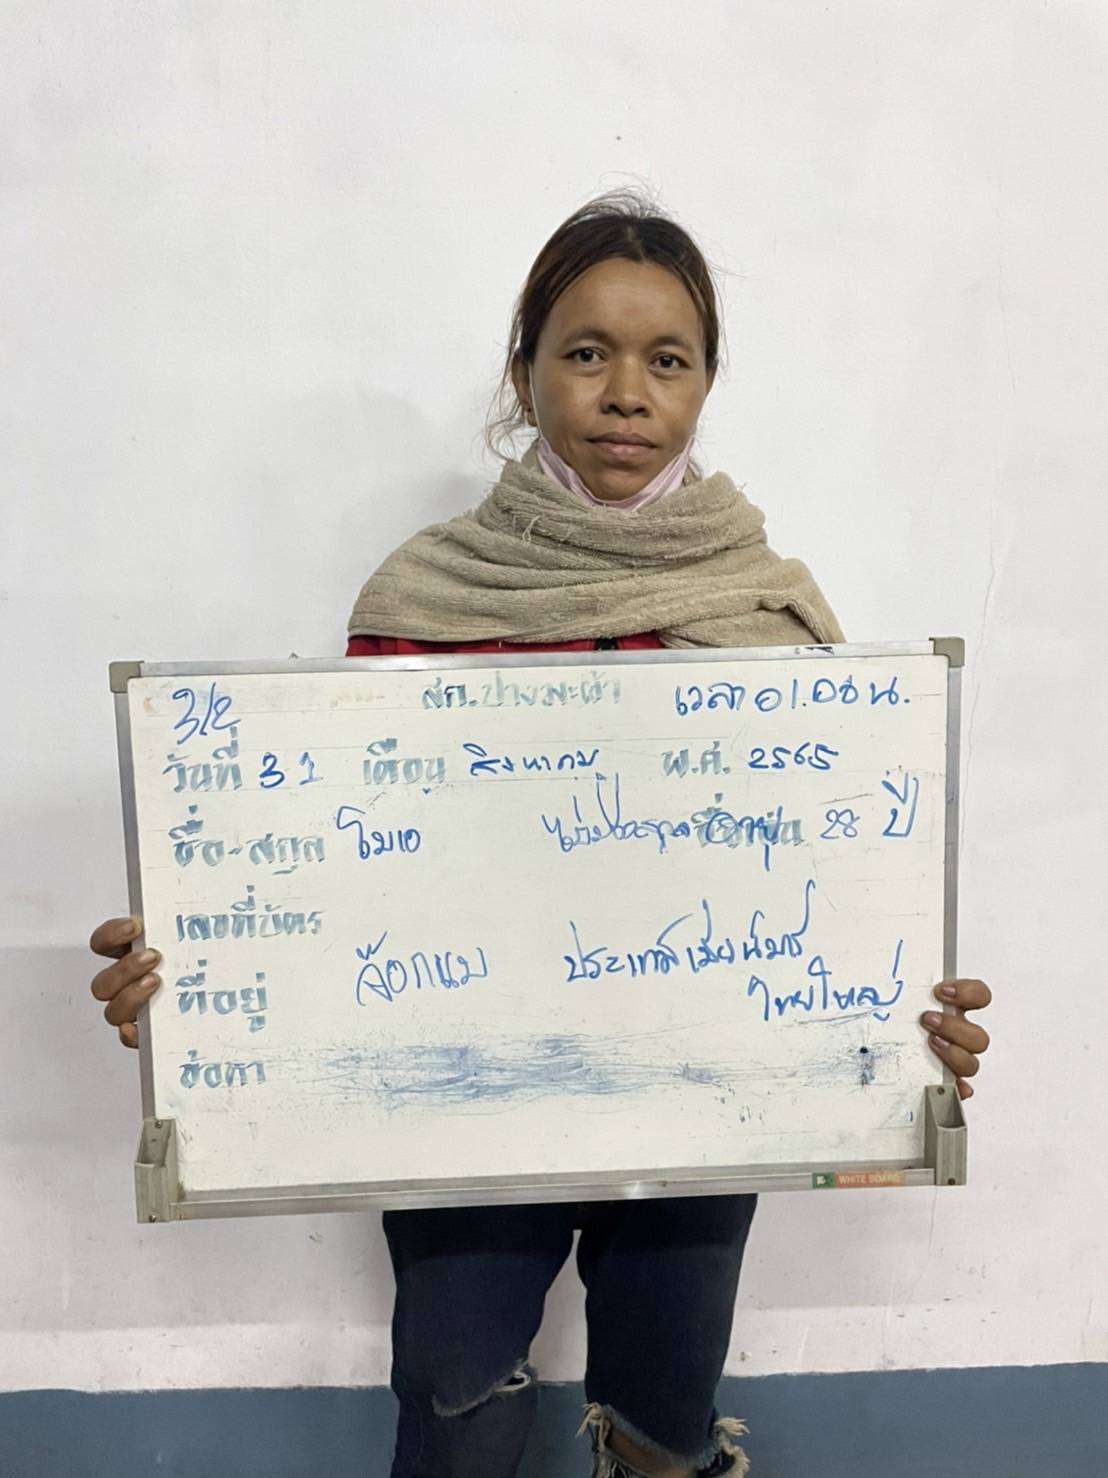 3/2 สภ.ปางมะผ้า เวลา 01.00 น.
วันที่ 31 เดือน สิงหาคม พ.ศ. 2565
ชื่อ-สกุล โมเอ ไม่มีสกุล อายุ 28 ปี
เลขที่บัตร
ที่อยู่ จ๊อกแม ประเทศเมียนมาร์
ไทยใหญ่
ข้อหา
WHITE BOARD